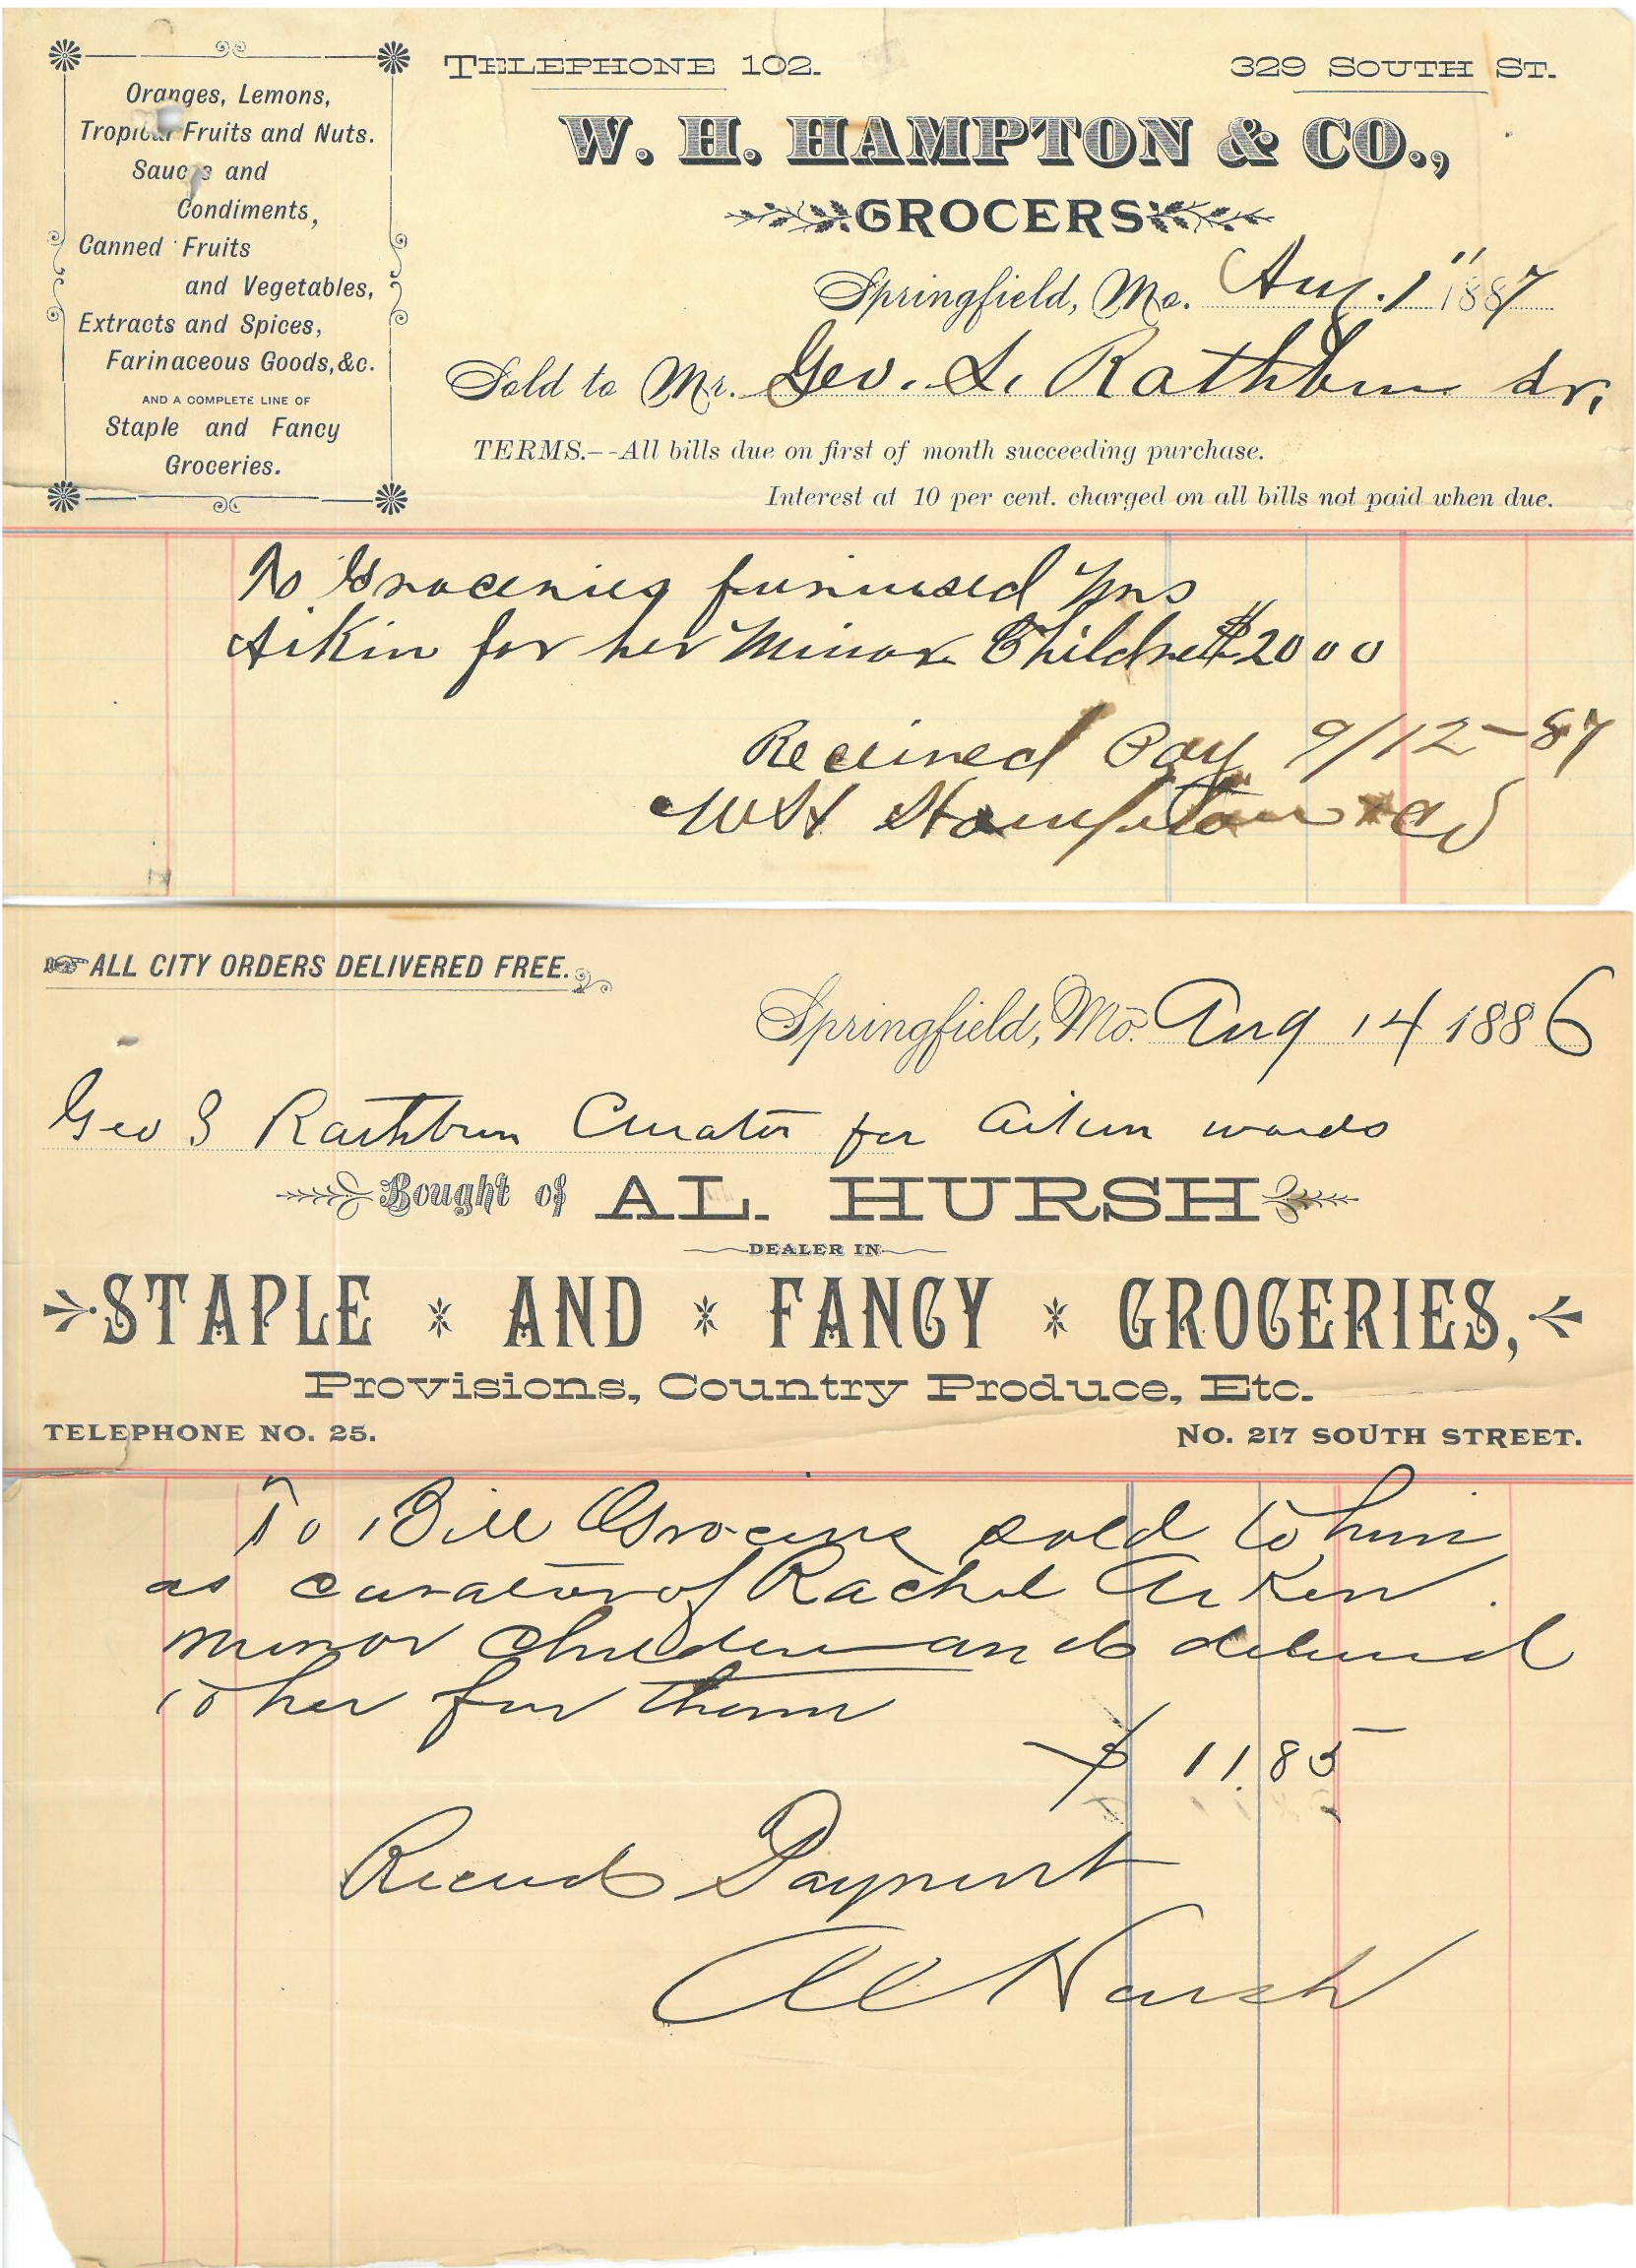 Oranges, Lemons,
Tropical Fruits and Nuts.
Sauces and
Condiments,
Canned Fruits
and Vegetables,
Extracts and Spices,
Farinaceous Goods, &c.
AND A COMPLETE LINE OF
Staple and Fancy
Groceries.
TELEPHONE 102.
329 SOUTH ST.
W. H. HAMPTON & CO.,
GROCERS
Springfield, Mo. Aug. 1" 1887
Sold to Mr. Geo. S. Rathbun dr.
TERMS.--All bills due on first of month succeeding purchase.
Interest at 10 per cent. charged on all bills not paid when due.
To Groceries Mrs
Aikin for her Minor Children $20 00
Received Pay 9/12-87
WH Hampton & Co
ALL CITY ORDERS DELIVERED FREE.
Springfield, Mo. Aug 14 1886
Geo S Rathbun Curator for Aiken wards
Bought of AL. HURSH
DEALER IN
STAPLE AND FANCY GROCERIES,
Provisions, Country Produce, Etc.
TELEPHONE NO. 25.
NO. 217 SOUTH STREET.
To Bill Groceries sold to him
as curator of Rachel Aiken
minor children and delivered
to her for them
$ 11.85
Received Payment
Al Hursh